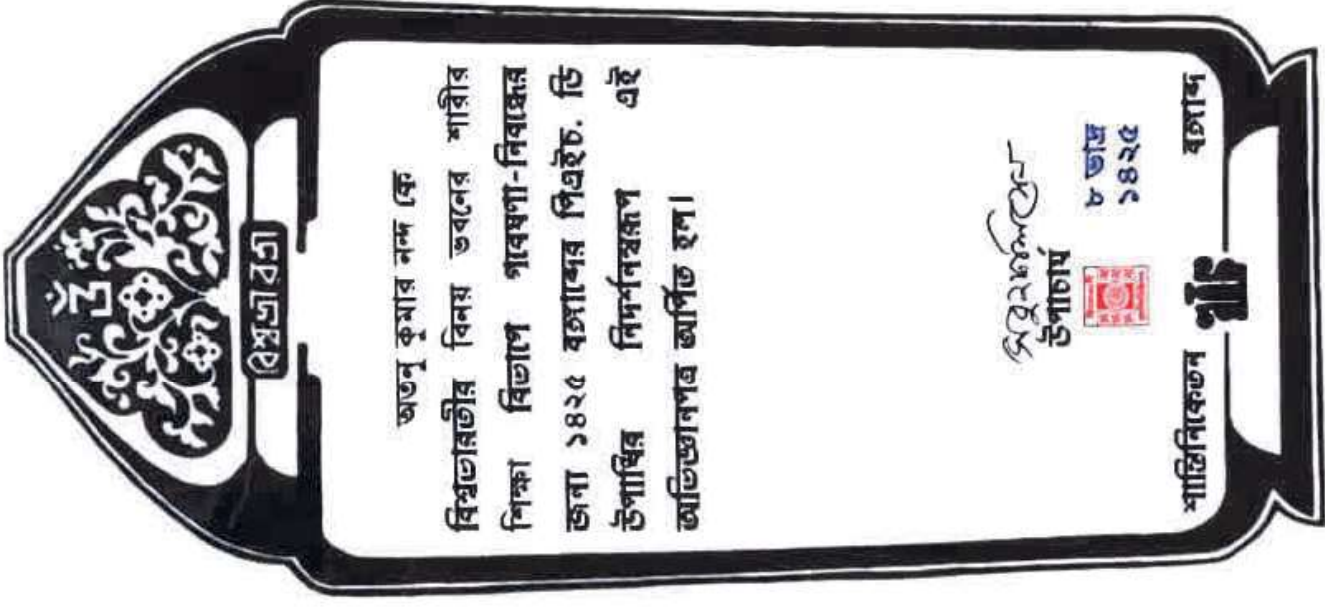 ওঁ
বিশ্বভারতী
অতনু কুমার নন্দ কে
বিশ্বভারতীর বিনয় ভবনের শারীর
শিক্ষা বিভাগে গবেষণা-নিবন্ধের
জন্য ১৪২৫ বঙ্গাব্দের পিএইচ. ডি
উপাধির নিদর্শনস্বরূপ এই
অভিজ্ঞানপত্র অর্পিত হল।
উপাচার্য
৮ ভাদ্র
১৪২৫
শান্তিনিকেতন বঙ্গাব্দ